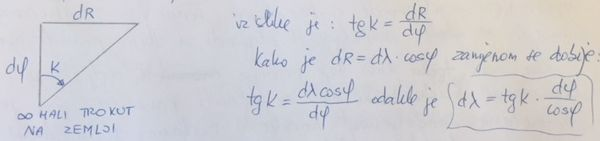 dR
dφ
K
∞ MALI TROKUT
NA ZEMLJI
iz slike je : tgK = dR/dφ
Kako je dR = dλ · cosφ zamjenom se dobije:
tgK = dλ cosφ/dφ odakle je dλ = tgK · dφ/cosφ